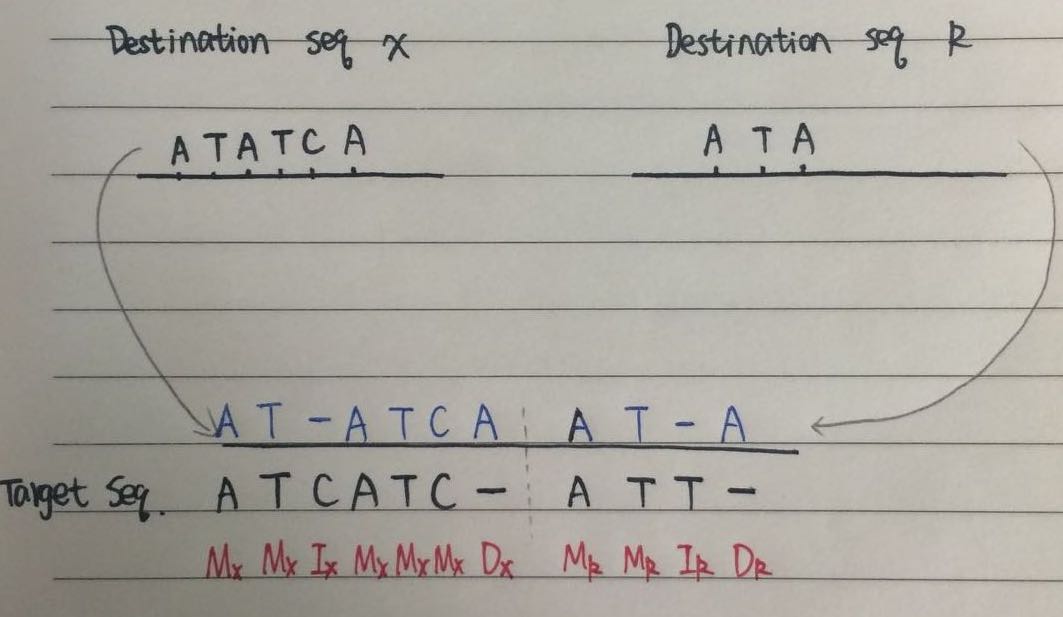 Destination seq x Destination seq R
A T A T C A A T A
A T - A T C A A T - A
Target Seq. A T C A T C - A T T -
Mx Mx Ix Mx Mx Mx Dx MR MR IR DR